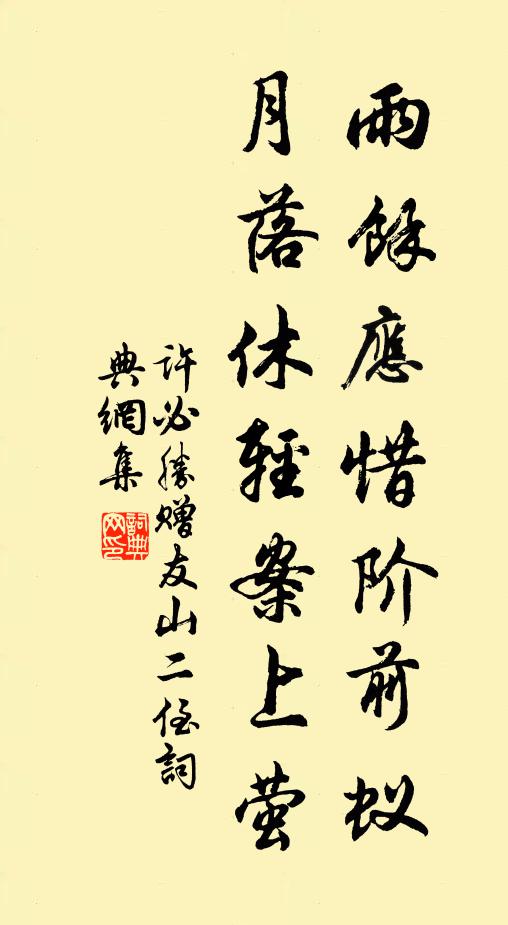 雨餘應惜阶前蚁
月落休輕案上萤
许必勝赠友山二侄詞
典網集
詞典网印